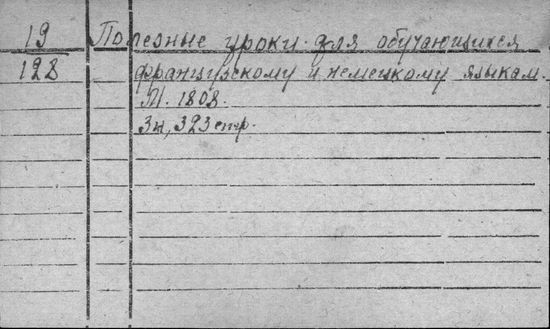 19
128
Полезные уроки для обучающихся
французскому и немецкому языкам.
М. 1808.
3н, 323 стр.